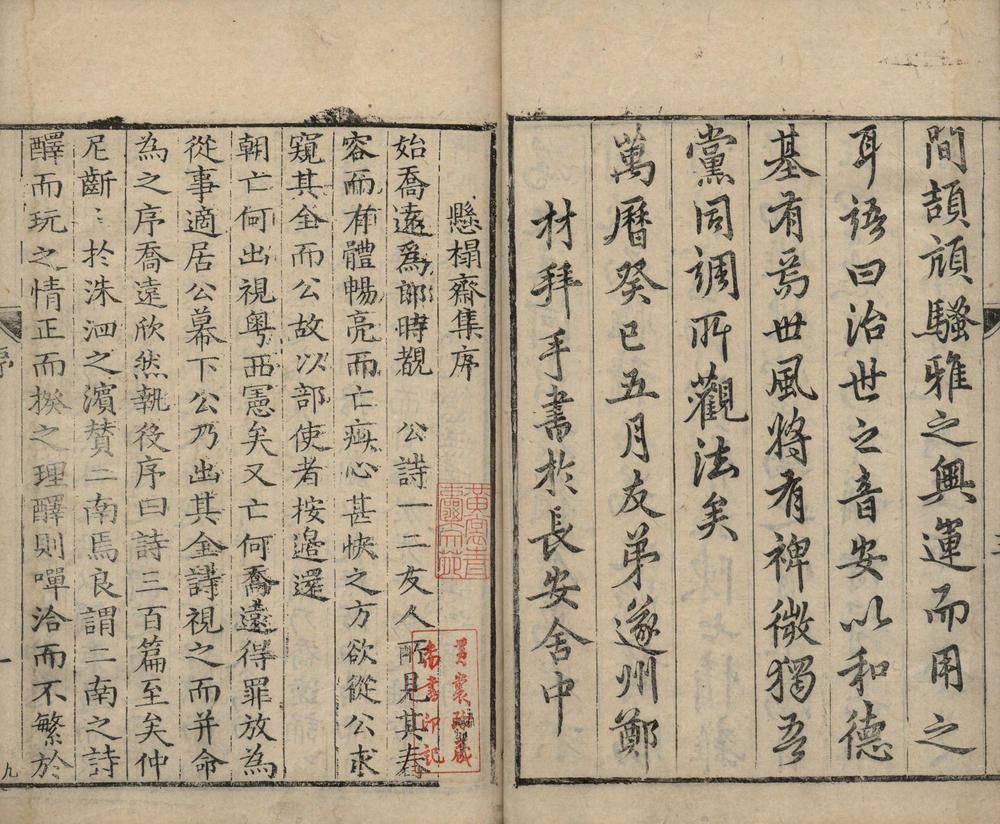 間頡頏騷雅之興運而用之
耳語曰治世之音安以和德
基有焉世風將有裨微獨吾
黨同調所觀法矣
萬曆癸巳五月友弟遂州鄭
材拜手書於長安舍中
懸榻齋集序
始喬遠為郎時覩公詩一二友人所見其春
容而有體暢亮而亡疾心甚快之方欲從公求
窺其全而公故以部使者按邊還
朝亡何出視粤西憲矣又亡何喬遠得罪放為
從事適居公幕下公乃出其全詩視之而并命
為之序喬遠欣然執役序曰詩三百篇至矣仲
尼齗〻於洙泗之濱贊二南焉良謂二南之詩
醳而玩之情正而揆之理醳則嘽洽而不繁於
序
一
九